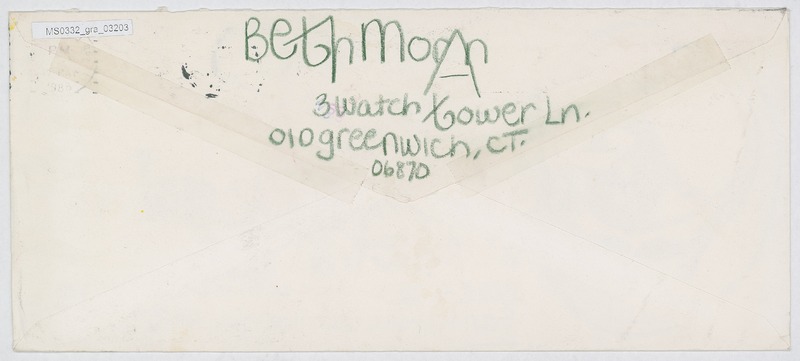 MS0332_gra_03203
Beth Moran
3 Watch tower Ln.
Old greenwich, CT.
06870